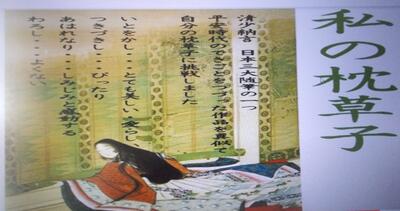 私の枕草子
清少納言 日本三大随筆の一つ
平安時代のできごとをつづった作品を真似て
自分の枕草子に挑戦しました
いとをかし・・・とても美しい、愛らしい
つきづきし・・・ぴったり
あはれなり・・・しみじみと感動する
わろし・・・よくない